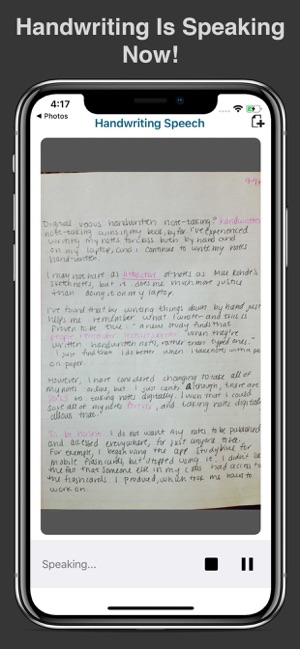 Handwriting Is Speaking
Now!
4:17
Photos
Handwriting Speech
Digital versus handwritten note-taking?
note-taking wins in my book, by far. I've experienced
writing my notes for class both by hand and
on my laptop, and I continue to write my notes
hand-written.
I may not have as of notes as
sketchnotes, but it does me much more justice
than doing it on my laptop.
I've found that by writing things down by hand, just
helps me remember what I wrote- and this is
proven to be true: "a new study finds that
people when they're
written handwritten notes, rather than typed ones."
I just find that I do better when I take notes with a
on paper.
However, I have considered changing to take all
of my notes online, but I just can't. Although, there are
to taking notes digitally. I wish that I could
save all of my notes and taking notes
allows that.
To be honest I do not want my notes to be published
and accessed everywhere, for just anyone to see.
For example, I began using the app StudyBlue for
mobile flashcards, but stopped using it. I didn't
the fact that someone else in my class had access to
the flashcards I produced, which took me hours to
work on.
Speaking...